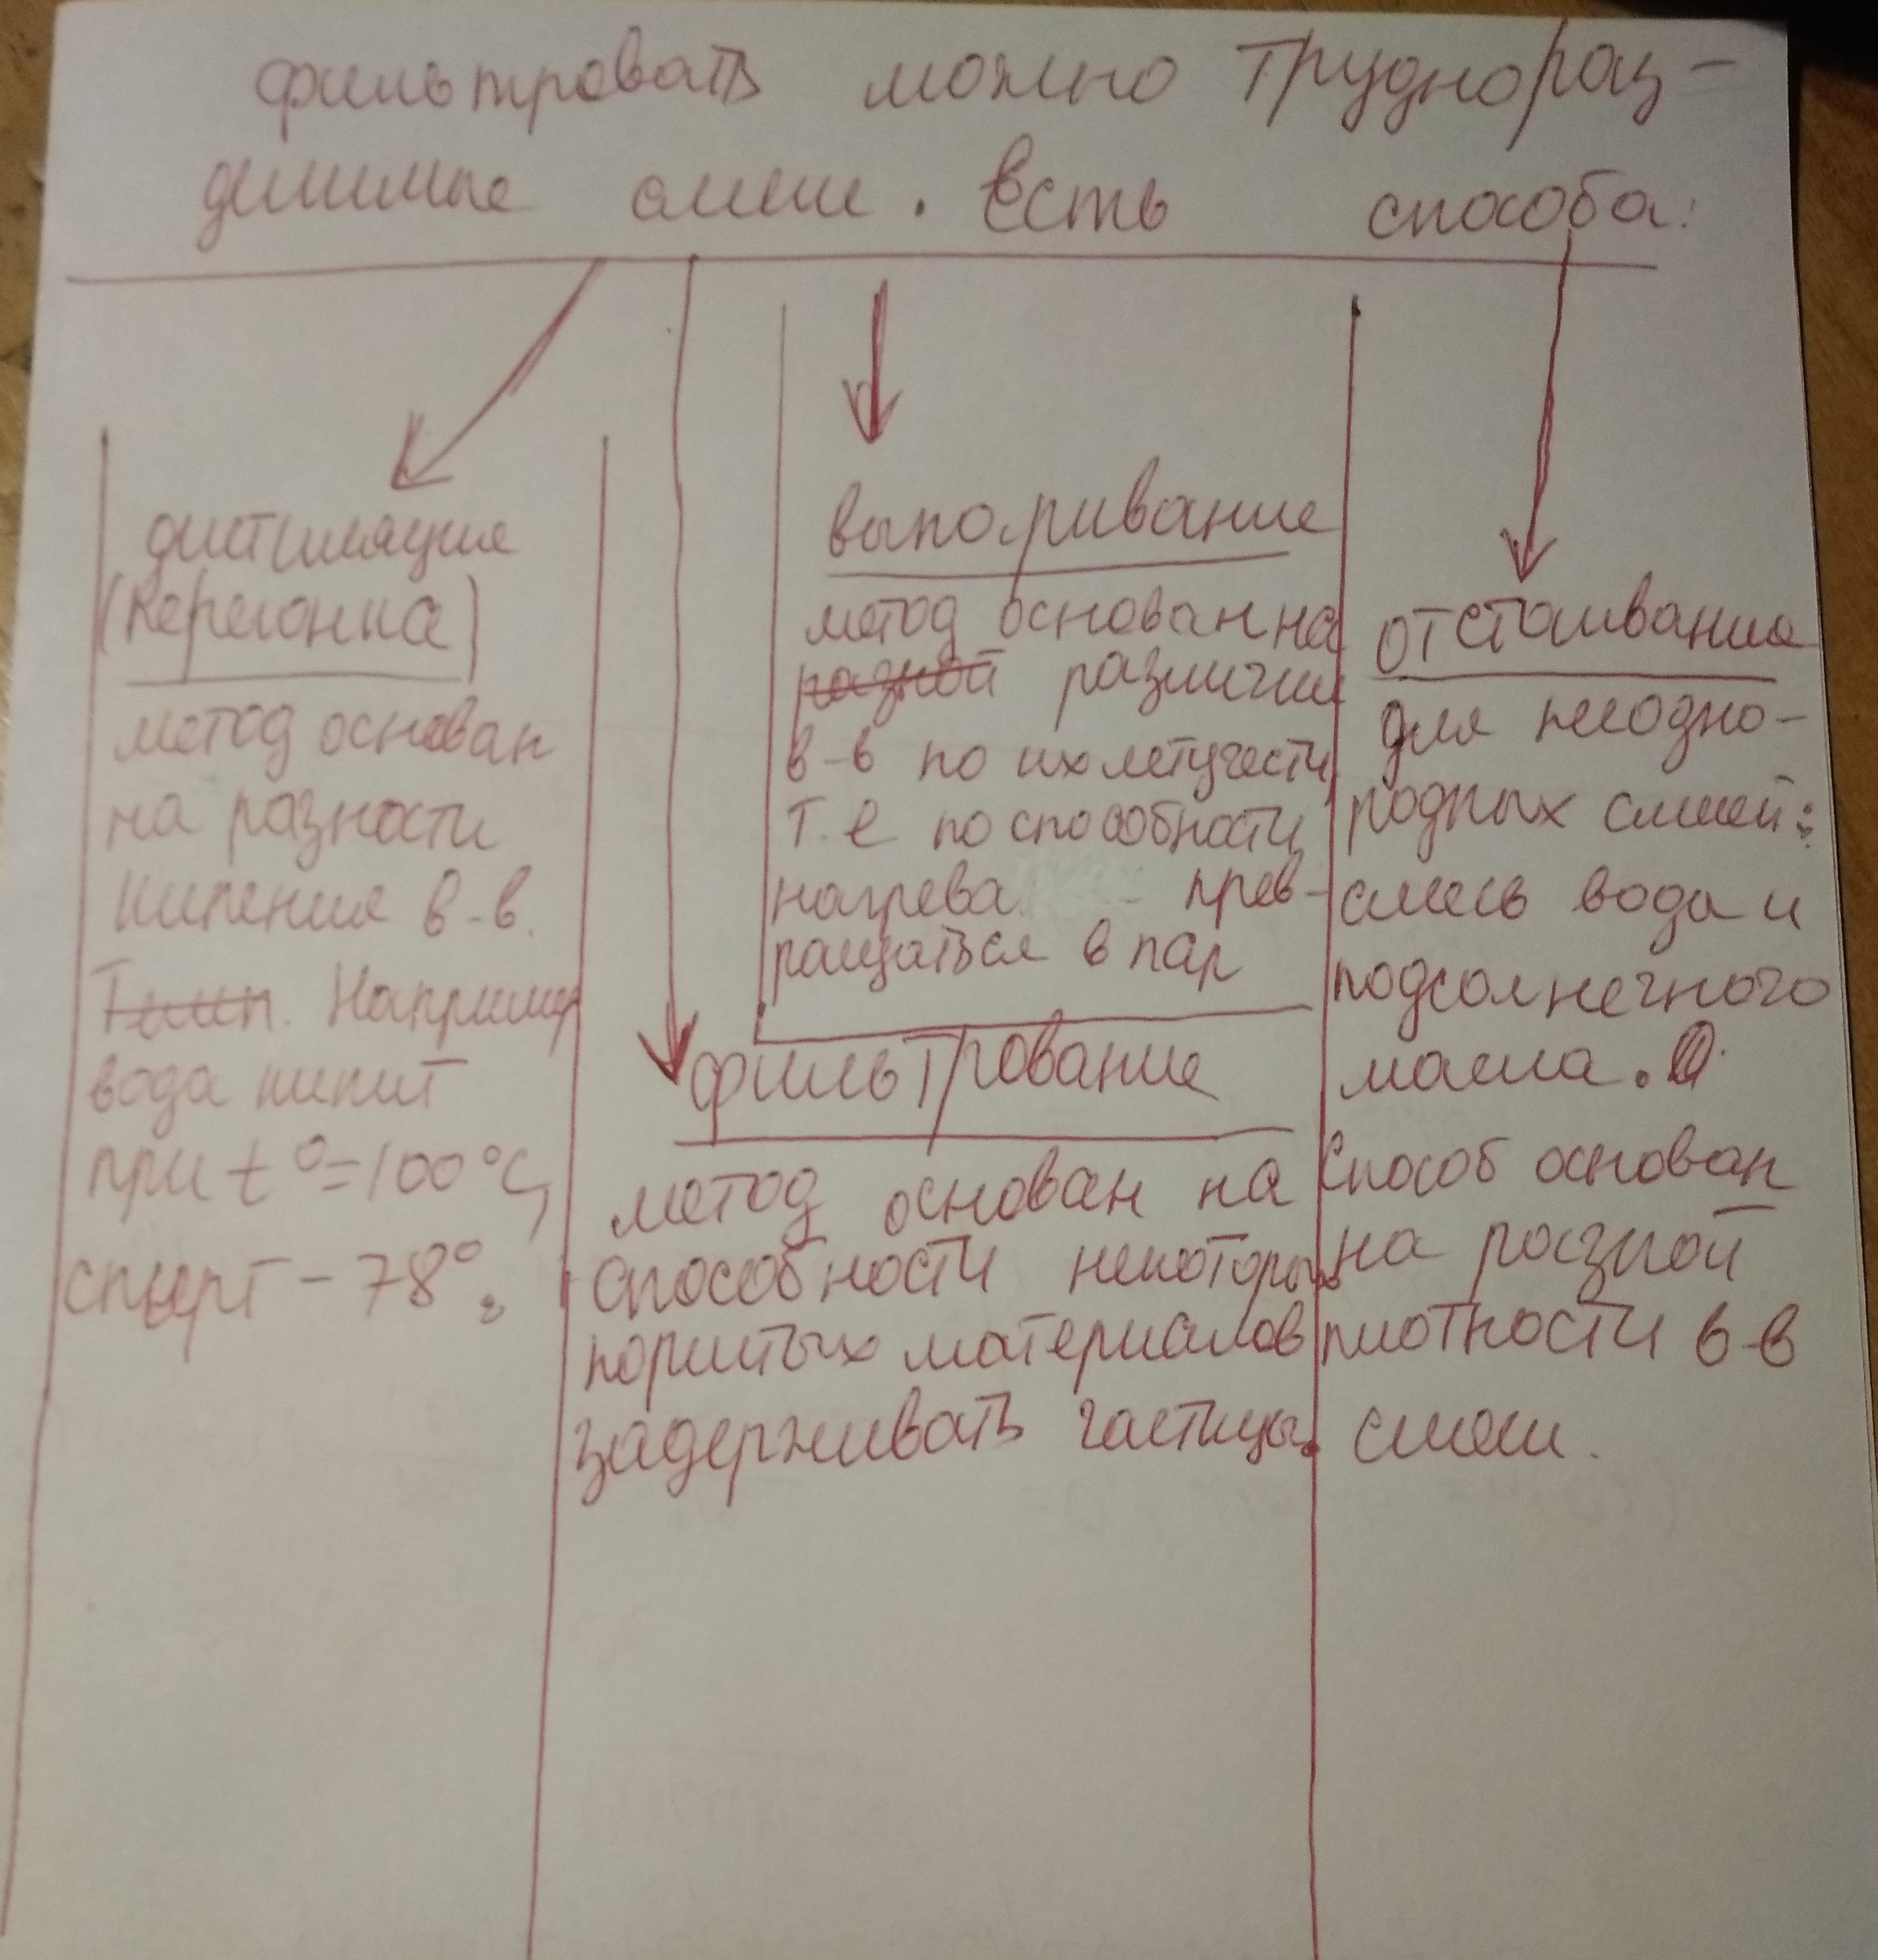 фильтровать можно труднораз-
делимые смеси. Есть способа:
дистиляция
(Перегонка)
метод основан
на разности
кипения в-в.
Темп. Например
вода кипит
при t°=100°C,
спирт - 78°.
выпаривание
метод основан на
разной различии
в-в по их летучести
т.е по способности
нагрева прев-
ращаться в пар
фильтрование
метод основан на
способности некоторых
пористых материалов
задерживать частицы.
отстаивание
для неодно-
родных смесей:
смесь вода и
подсолнечного
масла.
Способ основан
на разной
плотности в-в
смеси.